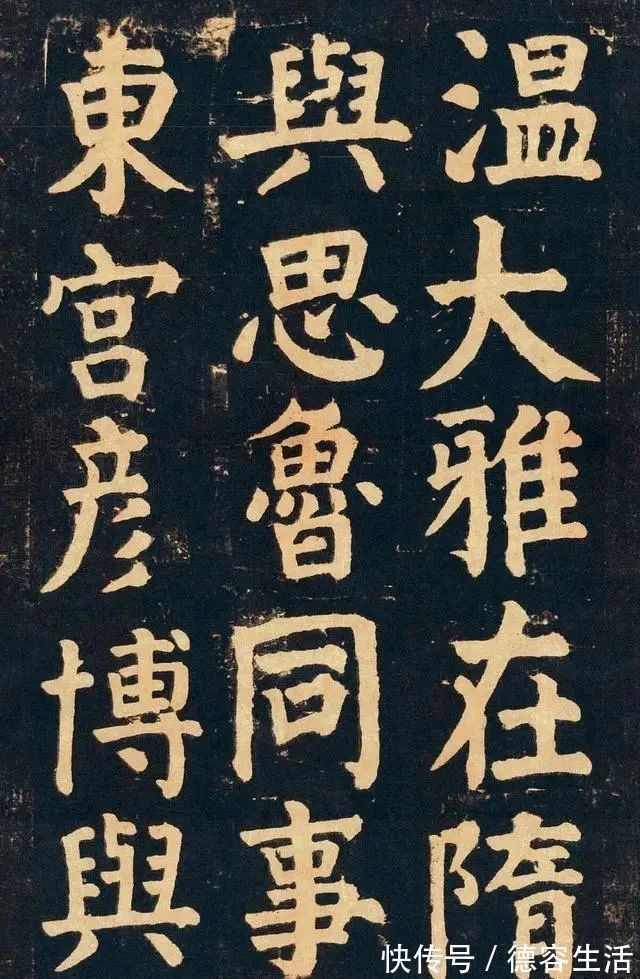 温大雅在隋
與思魯同事
東宫彦博與
快传号/德容生活